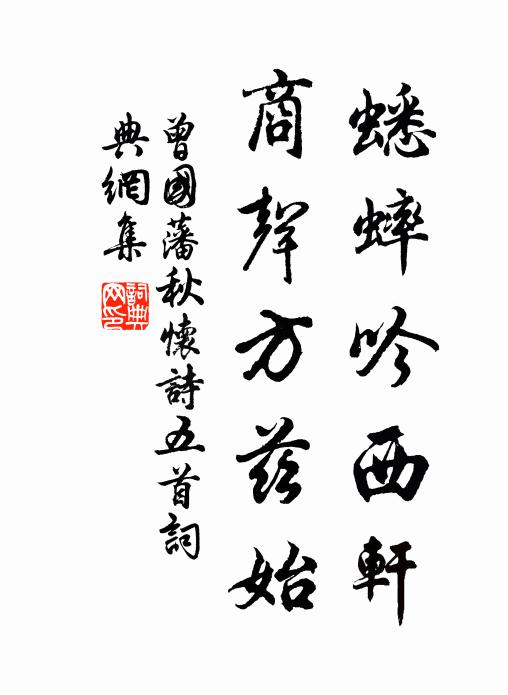 蟋蟀吟西軒
商聲方茲始
曾國藩秋懷詩五首詞
典網集
詞典
网印